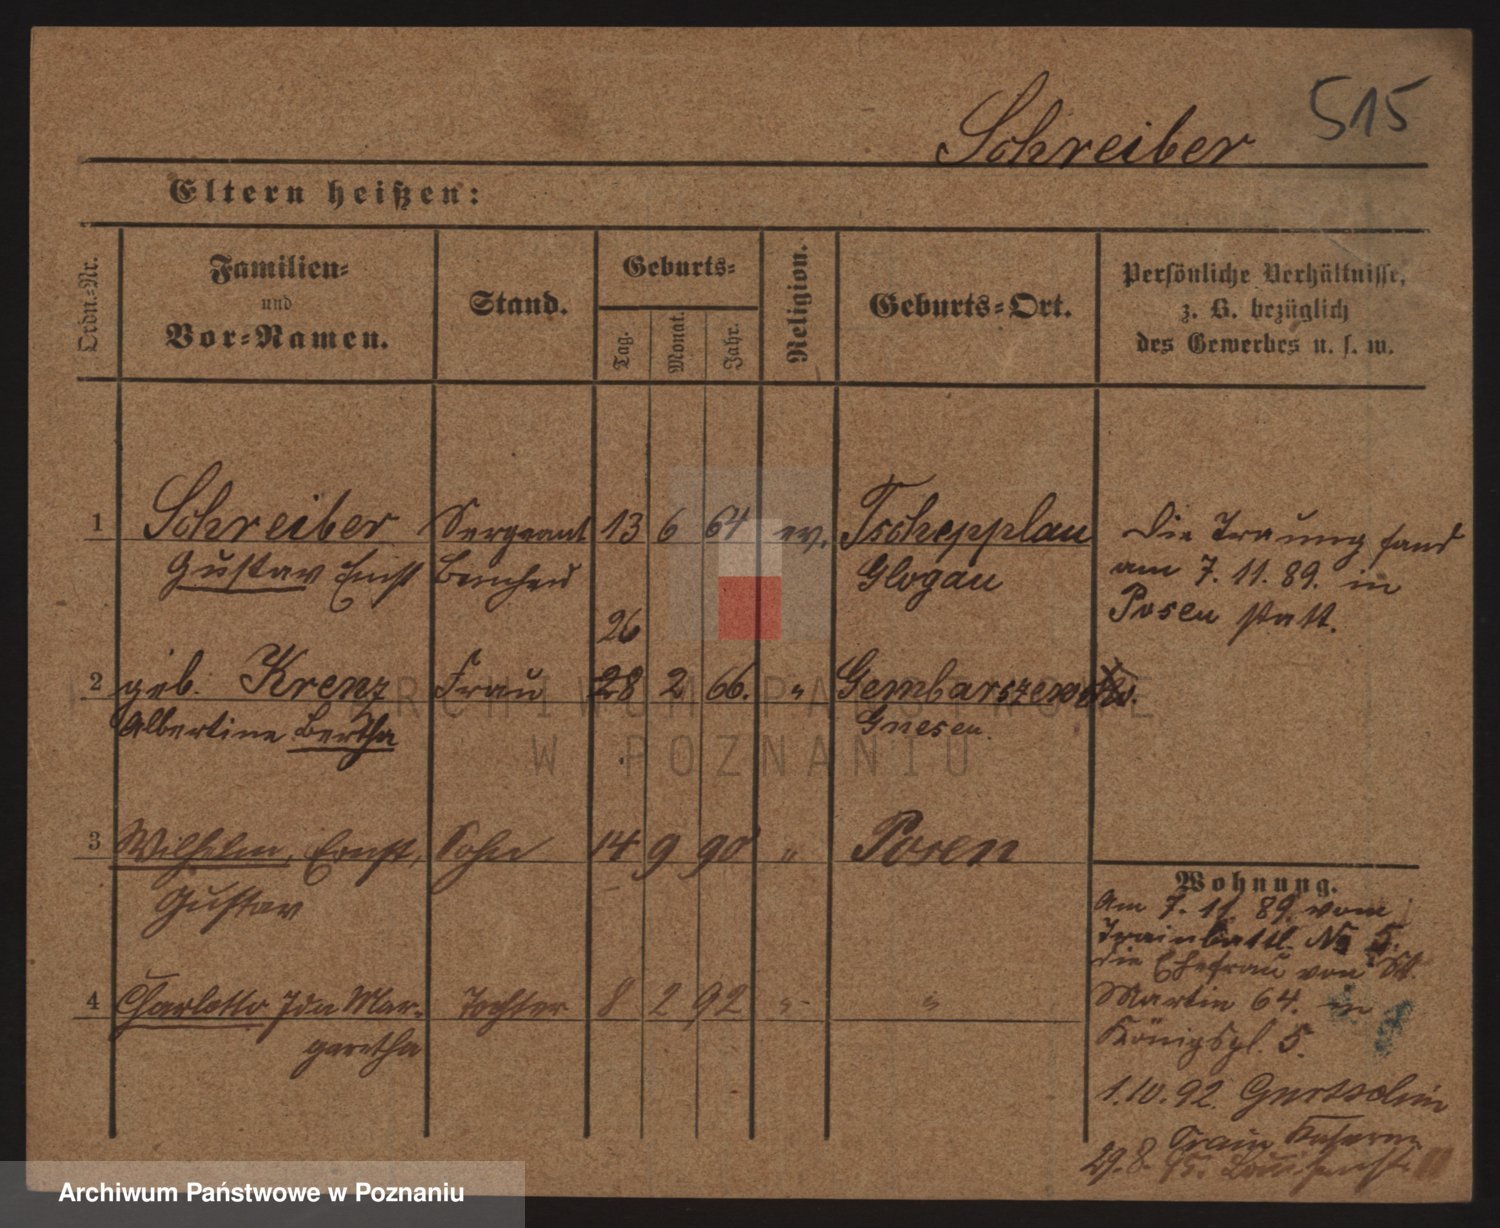 Schreiber 515
Eltern heißen:
Ordn.-Nr. Familien- und Vor-Namen. Stand. Geburts- Tag. Monat. Jahr. Religion. Geburts-Ort. Persönliche Verhältnisse, z. B. bezüglich des Gewerbes u. s. w.
1 Schreiber Sergeant 13 6 64 ev. Tschepplau Die Trauung fand
Gustav Ernst Glogau am 7. 11. 89. in
Posen statt.
26
2 geb. Krenz Frau 28 2 66. "
Albertine Bertha Gnesen.
3 Wilhelm, Ernst, Sohn 14 9 90 " Posen
Gustav
4 Charlotte Ida Mar- Tochter 8 2 92 " "
garetha
Wohnung.
Am 7. 11. 89. vom
Trainbattl. No 5.
die Ehefrau von St.
Martin 64. in
Königspl. 5.
1.10.92.
Train Kaserne
29. 8. 95.
ARCHIWUM PAŃSTWOWE
W POZNANIU
Archiwum Państwowe w Poznaniu